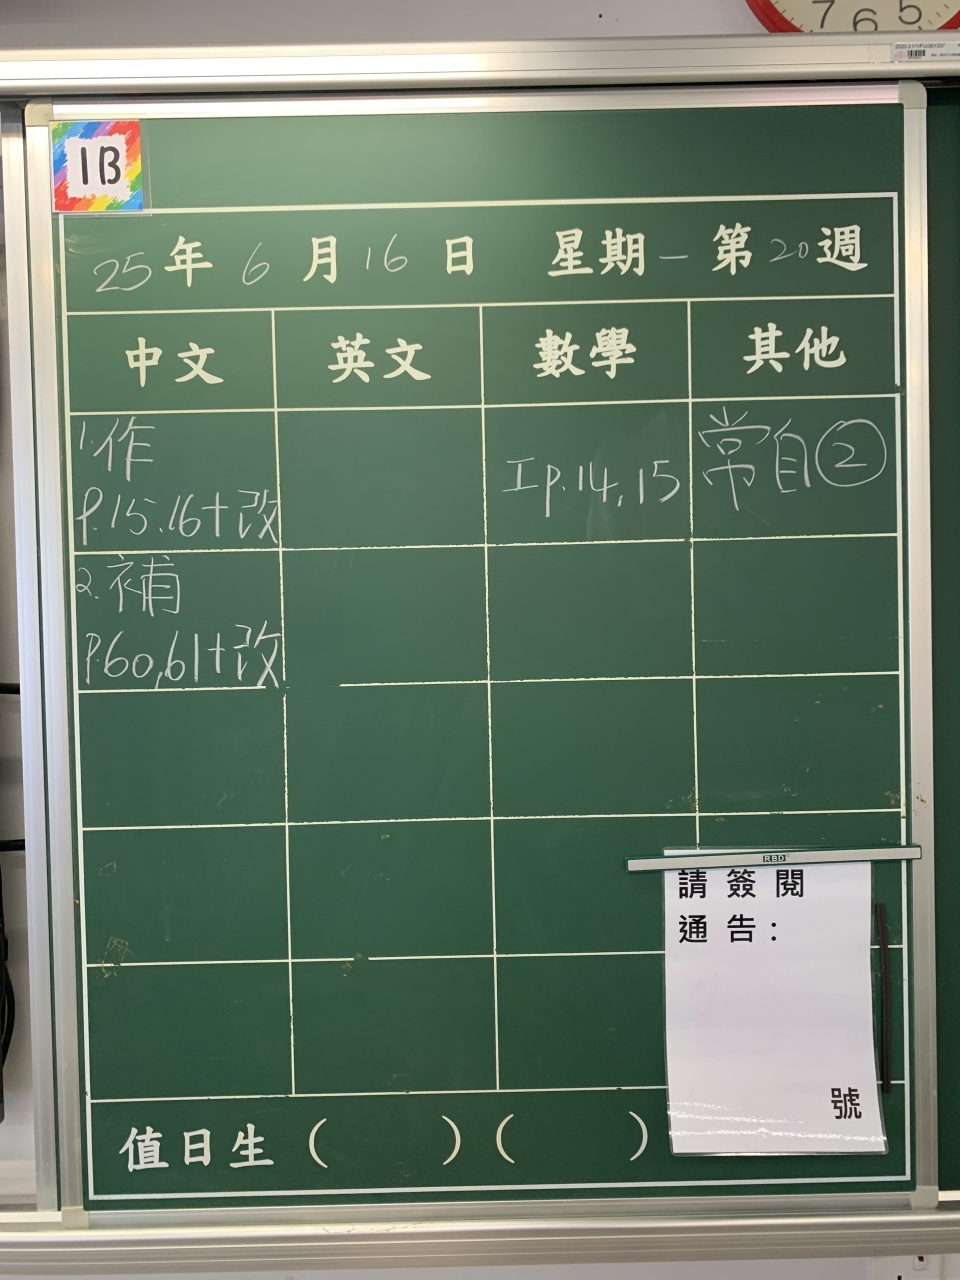 7 6 5
1B
25年6月16日 星期一 第20週
中文 英文 數學 其他
1.作
p.15.16+改
工p.14,15
常自②
2.補
p.60,61+改
RBD
請簽閱
通告：
號
值日生（ ）（ ）